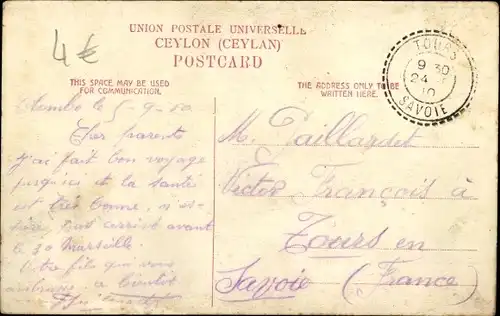 4€
UNION POSTALE UNIVERSELLE
CEYLON (CEYLAN)
POSTCARD
THIS SPACE MAY BE USED
FOR COMMUNICATION.
THE ADDRESS ONLY TO BE
WRITTEN HERE.
TOURS
9 30
24
10
SAVOIE
le 5-9-10
Cher parents
j'ai fait bon voyage
jusqu'ici et la santé
est très bonne,
pas avant
le 30 Marseille.
Votre fils qui vous
embrasse à bientôt
M. Paillardet
Victor François à
Tours en
Savoie (France)